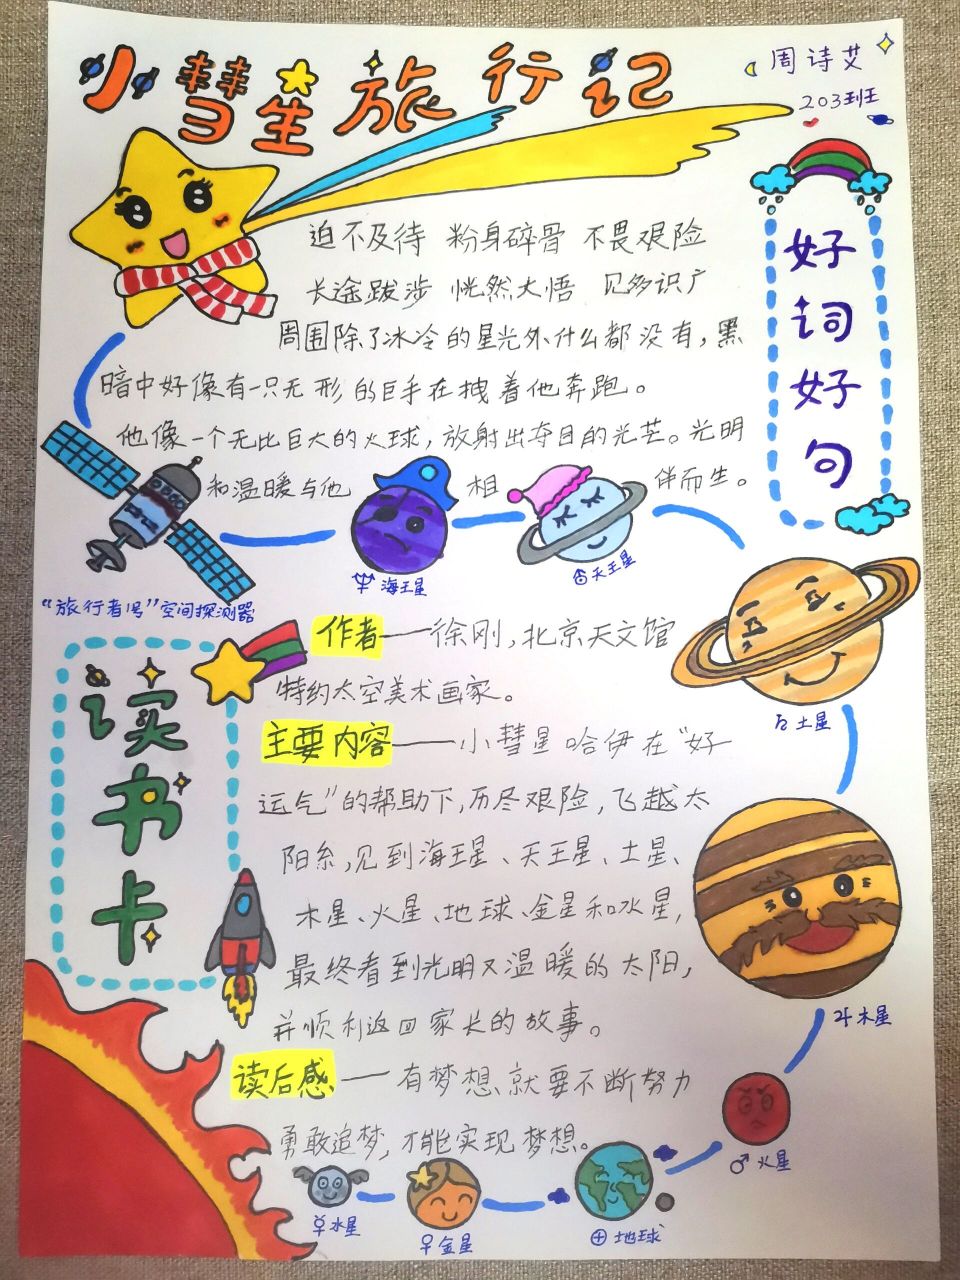 小彗星旅行记
周诗艾
203班
好词好句
迫不及待 粉身碎骨 不畏艰险
长途跋涉 恍然大悟 见多识广
周围除了冰冷的星光外什么都没有，黑
暗中好像有一只无形的巨手在拽着他奔跑。
他像一个无比巨大的火球，放射出夺目的光芒。光明
和温暖与他相伴而生。
海王星
天王星
"旅行者1号"空间探测器
土星
读书卡
作者——徐刚，北京天文馆
特约太空美术画家。
主要内容——小彗星哈伊在"好
运气"的帮助下，历尽艰险，飞越太
阳系，见到海王星、天王星、土星、
木星、火星、地球、金星和水星，
最终看到光明又温暖的太阳，
并顺利返回家长的故事。
木星
读后感——有梦想就要不断努力
勇敢追梦，才能实现梦想。
♂火星
☿水星
♀金星
⊕地球